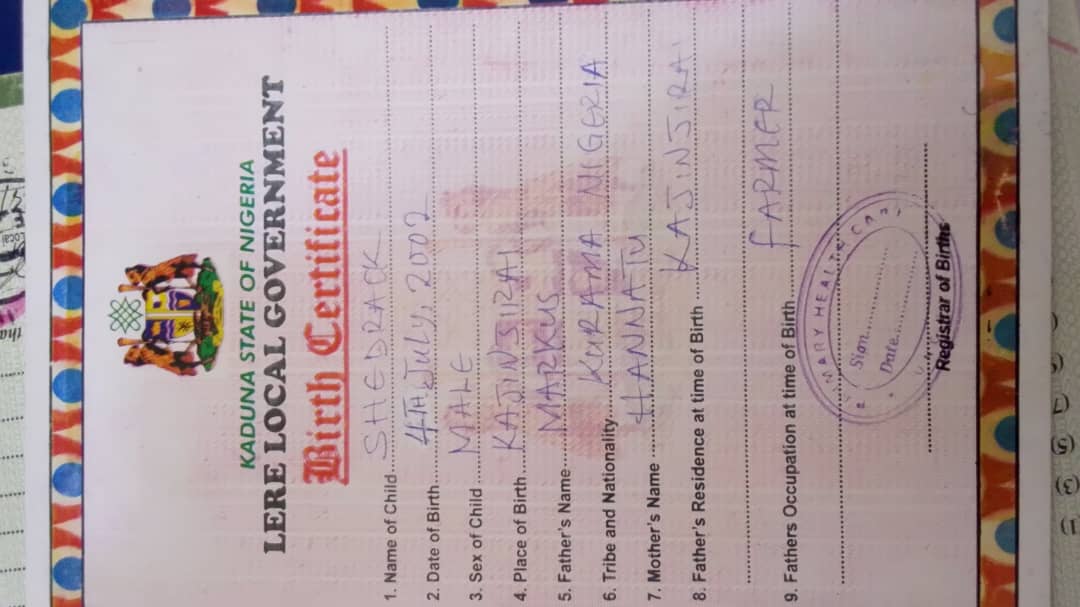 KADUNA STATE OF NIGERIA
LERE LOCAL GOVERNMENT
Birth Certificate
1. Name of Child SHEDRACK
2. Date of Birth 4TH, July, 2002
3. Sex of Child MALE
4. Place of Birth
5. Father's Name MARKUS
6. Tribe and Nationality KURAMA NIGERIA
7. Mother's Name HANNATU
8. Father's Residence at time of Birth KAJINJIRA
9. Fathers Occupation at time of Birth FARMER
MARY HEALTH
Sign
Date
Registrar of Births